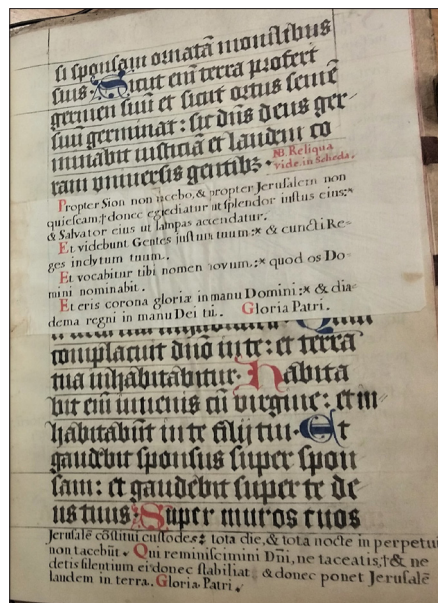 si sponsam ornatā monilibus
suis. Sicut em̄ terra profert
germen suū et sicut ortus semē
suū germinat: sic dn̄s deus ger-
minabit iusticiā et laudem co
ram vniuersis gentibꝫ.
NB. Reliqua
vide in Scheda.
Propter Sion non tacebo, & propter Jerusalem non
quiescam;† donec egrediatur ut splendor iustus eius;*
& Salvator eius ut lampas accendatur.
Et videbunt Gentes justum tuum:* & cuncti Re-
ges inclytum tuum.
Et vocabitur tibi nomen novum:* quod os Do-
mini nominabit.
Et eris corona gloriæ in manu Domini:* & dia-
dema regni in manu Dei tui. Gloria Patri.
complacuit dn̄o in te: et terra
tua inhabitabitur. Habita
bit em̄ iuuenis cū virgine: et in
habitabūt in te filij tui. Et
gaudebit sponsus super spon
sam: et gaudebit super te de
us tuus. Super muros tuos
Jerusalē cōstitui custodes: tota die, & tota nocte in perpetuū
non tacebūt. Qui reminiscimini Dn̄i, ne taceatis,† & ne
detis silentium ei donec stabiliat & donec ponet Jerusalē
laudem in terra. Gloria Patri.